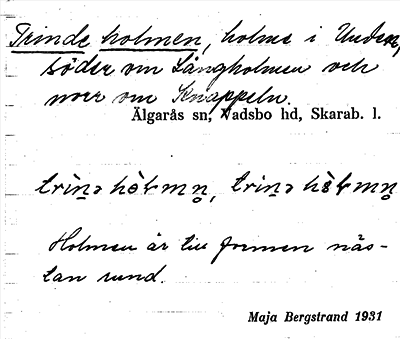 Trinde holmen, holme i Unden,
söder om Långholmen och
norr om Knappeln.
Älgarås sn, Vadsbo hd, Skarab. l.
Holmen är till formen näs-
tan rund.
Maja Bergstrand 1931